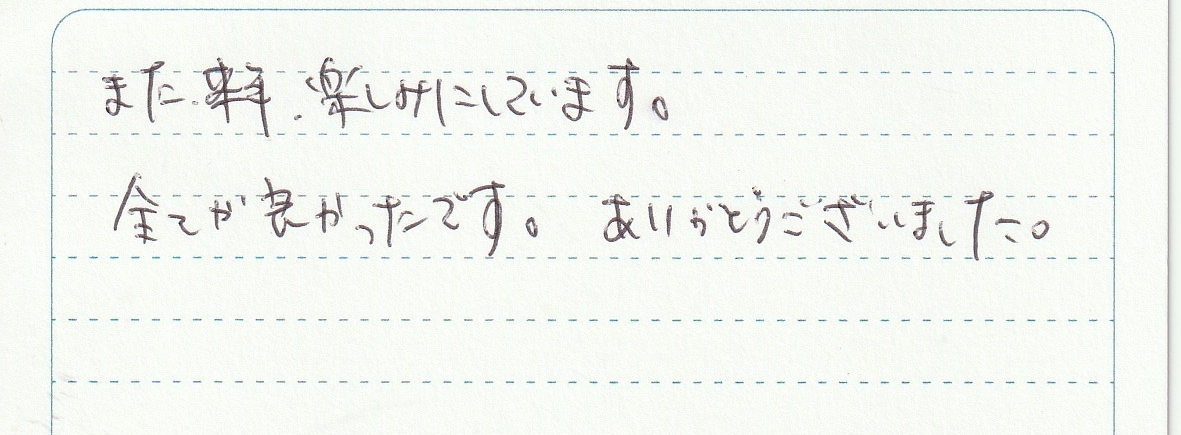 また来年、楽しみにしています。
全てが良かったです。 ありがとうございました。